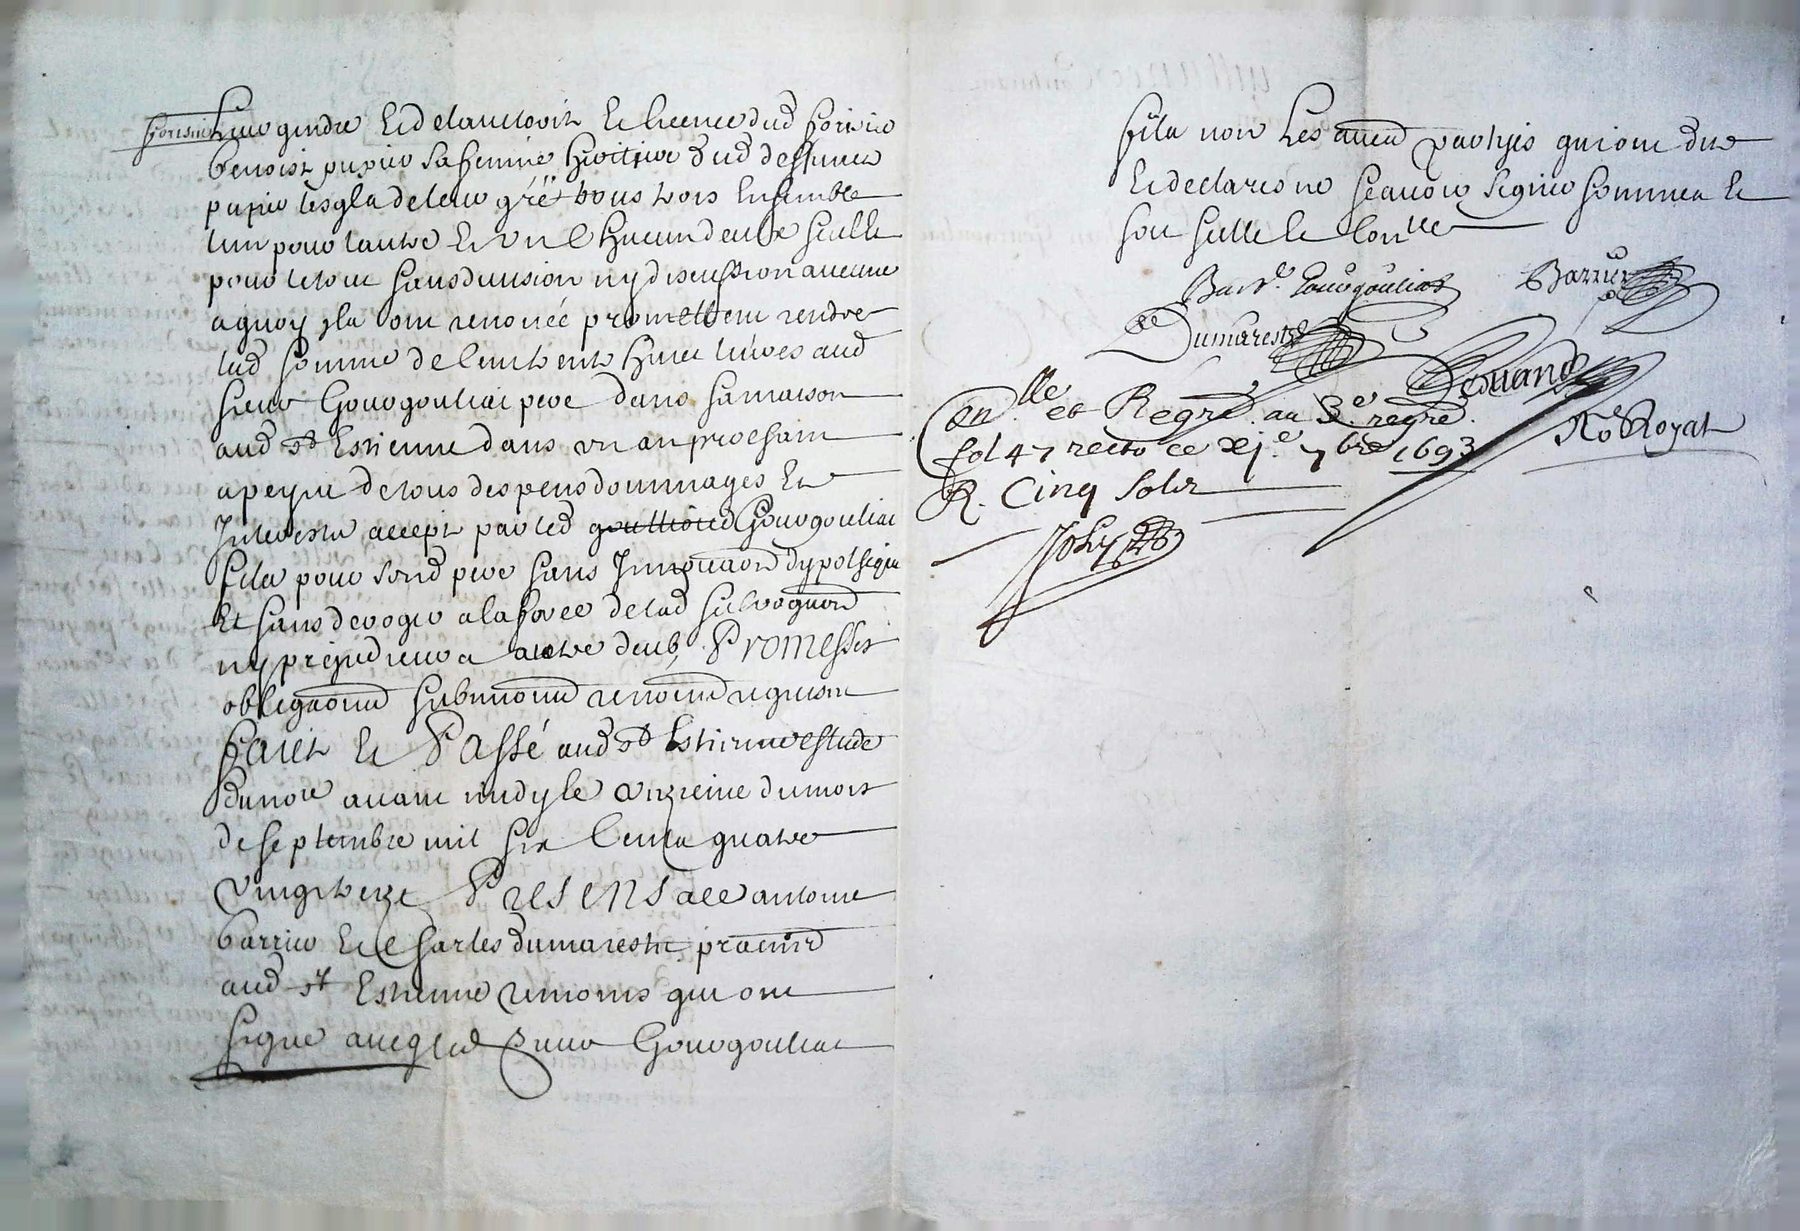 gendre Et de lauctorité Et licence dud
benoist pupier sa femme heritiere dud deffunct
pupier lesqls de leur gré tous trois Ensemble
lun pour lautre Et un Chacun deux seulle
pour le tout sans division ny discussion aucune
a quoy ils ont renoncé promettent rendre
lad somme de Cent livres aud
sieur Gourgouliat pere dans sa maison
aud st Estienne dans un an prochain
a peyne de tous despens dommages Et
Interestz accept par led Gourgouliat
filz pour sond pere sans Innovaon dypotheque
Et sans deroger a la force de lad
ny prejudicier a autre deub, Promesses
obligaons submons renons requises
faict Et Passé aud st Estienne estude
du nore avant midy le onzieme du mois
de septembre mil six Centz quatre
vingt treze Presens mre antoine
barrier Et Charles dumarestz praciens
aud st Estienne tesmoins qui ont
signé avecq led sieur Gourgouliat
filz non les autres parties qui ont dit
Et declaré ne scavoir signer sommez Et
soit sellé Et Conllé
Gourgouliat
Barrier
Dumarestz
Conllé et Regré au 3e regre
fol 47 recto ce xje 7bre 1693
R. Cinq solz
Ro Royat